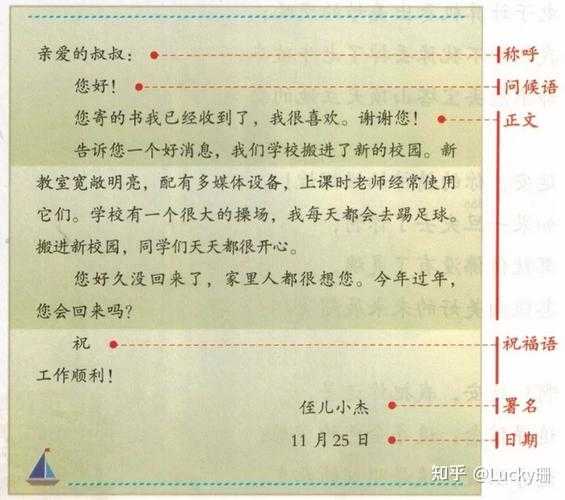 亲爱的叔叔: 称呼
您好! 问候语
您寄的书我已经收到了，我很喜欢。谢谢您! 正文
告诉您一个好消息，我们学校搬进了新的校园。新
教室宽敞明亮，配有多媒体设备，上课时老师经常使用
它们。学校有一个很大的操场，我每天都会去踢足球。
搬进新校园，同学们天天都很开心。
您好久没回来了，家里人都很想您。今年过年，
您会回来吗?
祝 祝福语
工作顺利!
侄儿小杰 署名
11月25日 日期
知乎 @Lucky珊